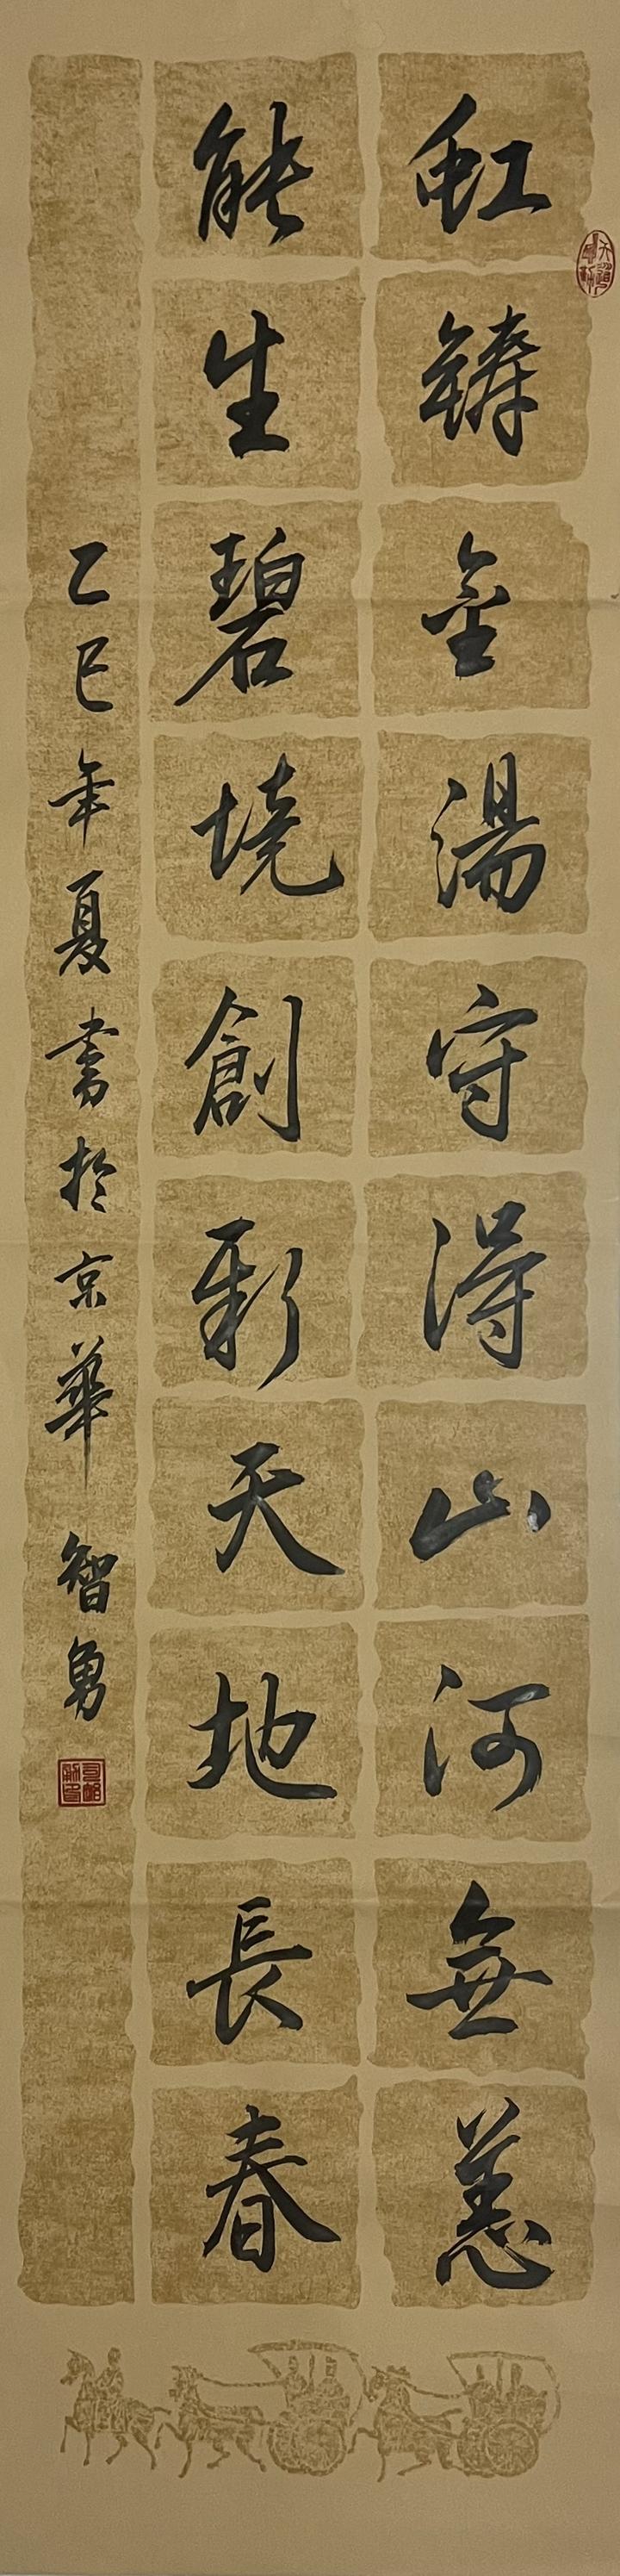 虹鑄金湯守得山河無恙
能生碧境創新天地長春
乙巳年夏書於京華 智勇
天道酬勤